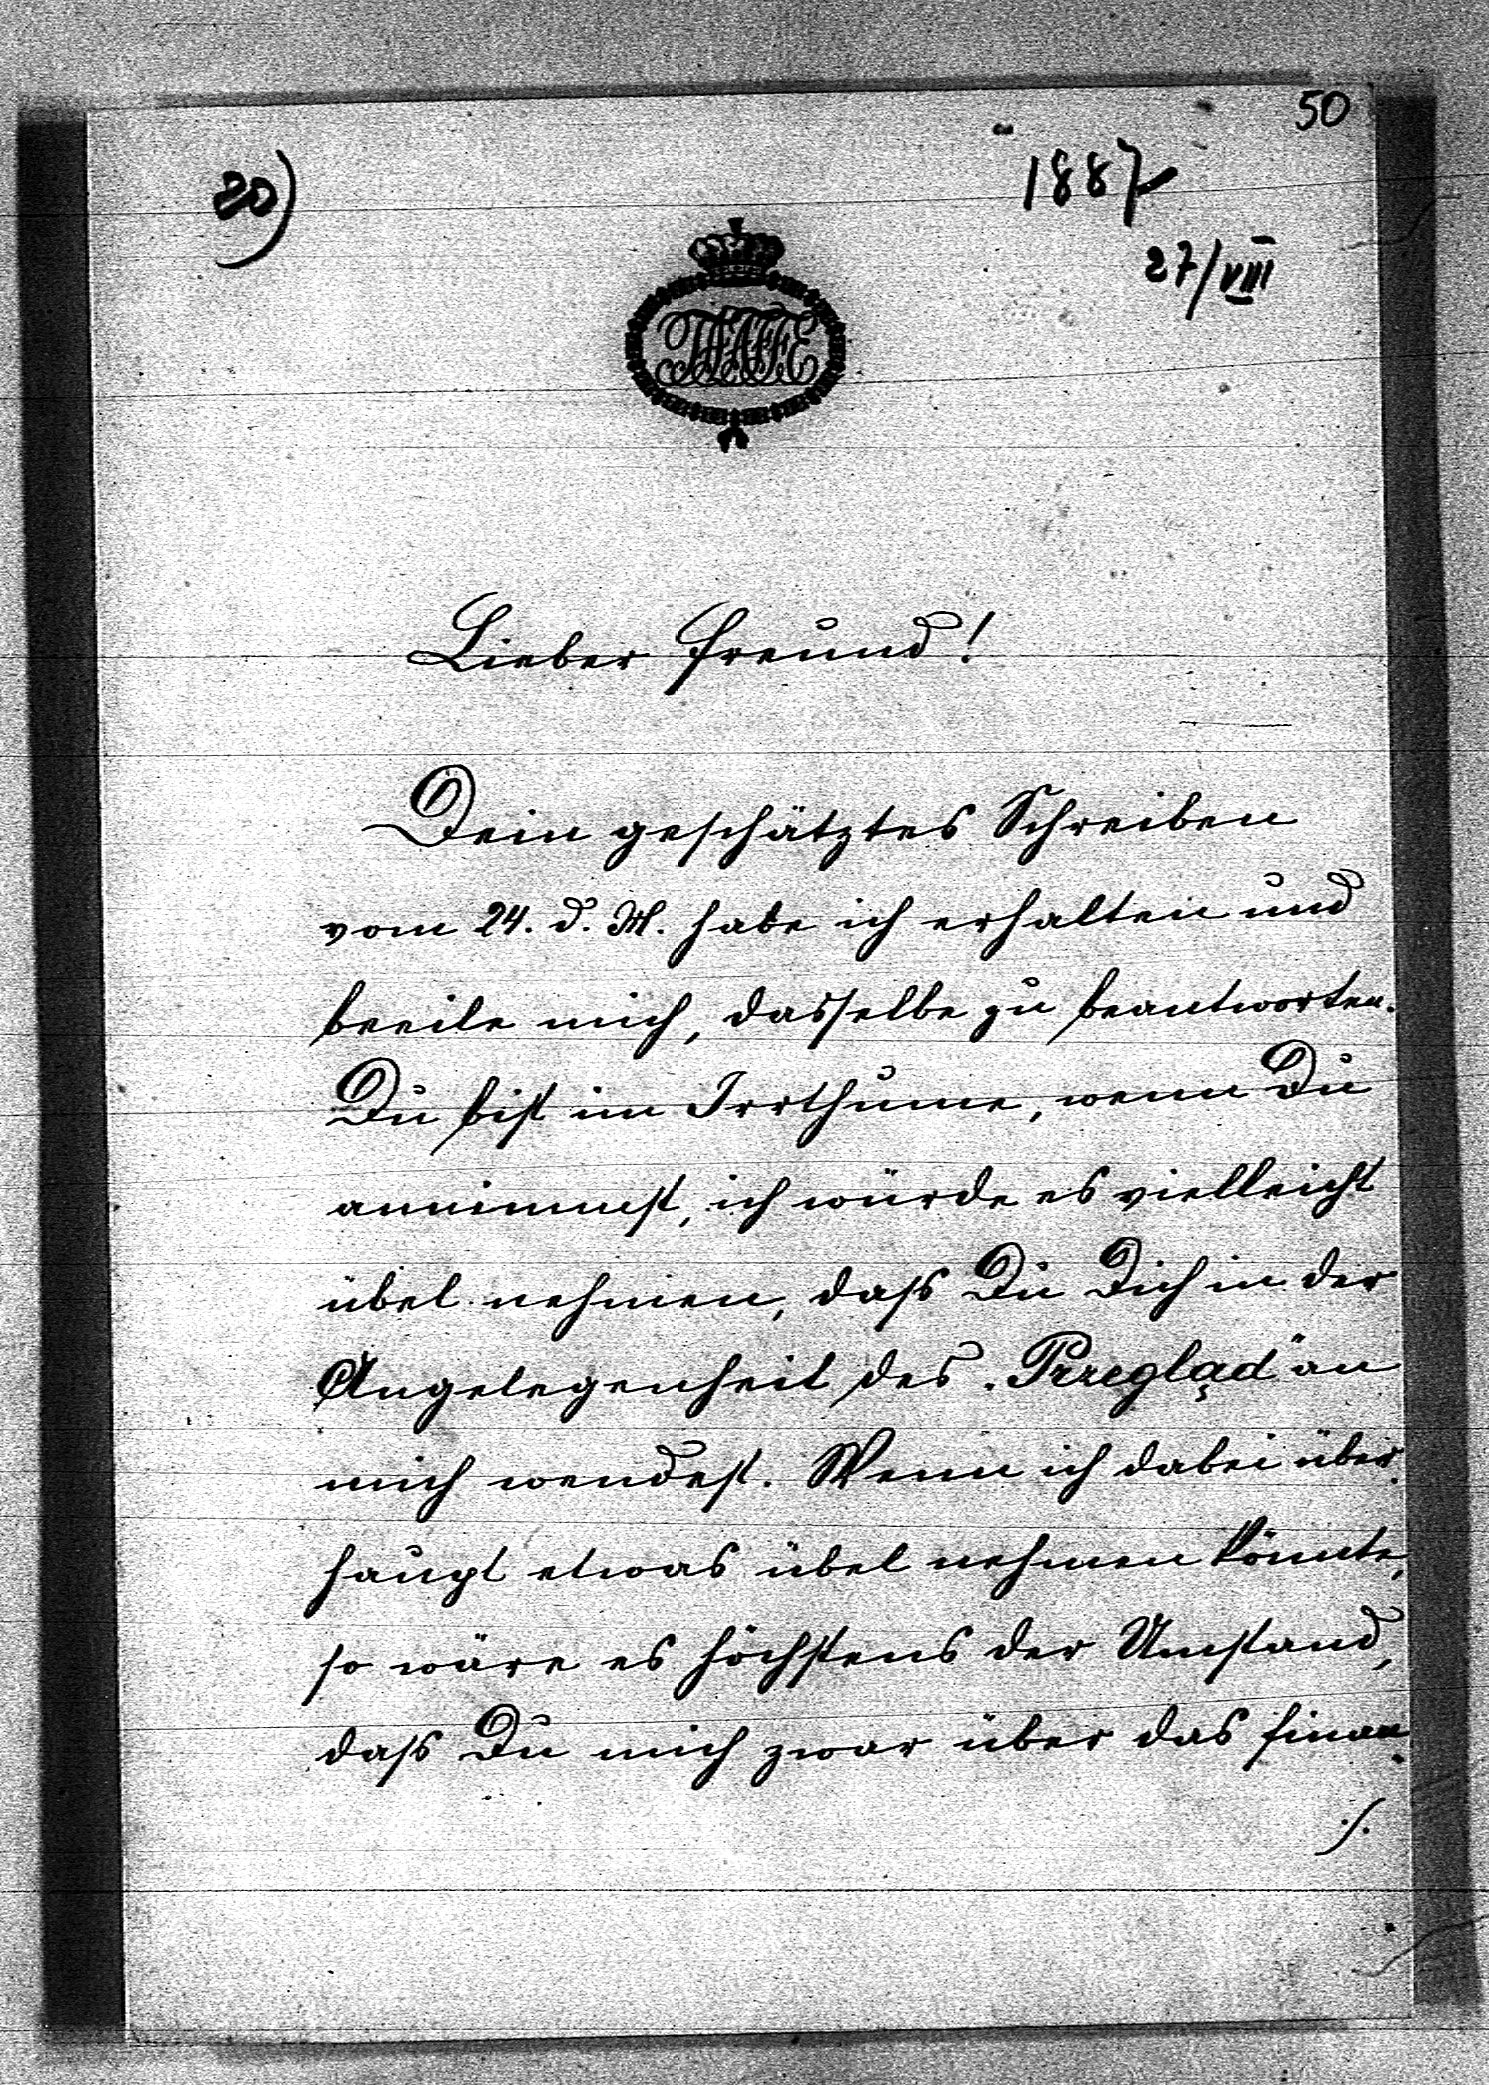 50
20)
1887
27/VIII
TAAFFE
Lieber Freund!
Dein geschätztes Schreiben
vom 24. d. M. habe ich erhalten und
beeile mich, dasselbe zu beantworten.
Du bist im Irrthume, wenn Du
annimmst, ich würde es vielleicht
übel nehmen, daß Du Dich in der
Angelegenheit des „Przegląd" an
mich wendest. Wenn ich dabei über-
haupt etwas übel nehmen könnte,
so wäre es höchstens der Umstand,
daß Du mich zwar über das finan-
./.